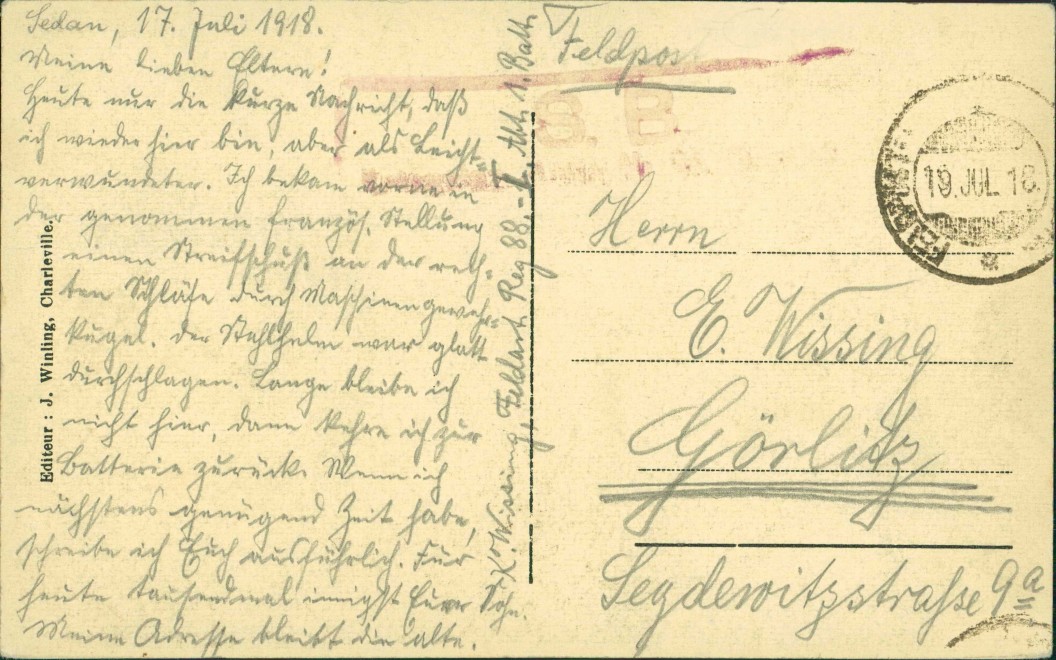 Sedan, 17. Juli 1918.
Meine lieben Eltern!
Heute nur die kurze Nachricht, daß
ich wieder hier bin, aber als Leicht-
verwundeter. Ich bekam vorne in
der genommen französ. Stellung
einen Streifschuß an der rech-
ten Schläfe durch Maschinengewehr-
kugel. Der Stahlhelm war glatt
durchschlagen. Lange bleibe ich
nicht hier, dann kehre ich zur
Batterie zurück. Wenn ich
nächstens genügend Zeit habe,
schreibe ich Euch ausführlich. Für
heute tausendmal innigst Euer Sohn.
Meine Adresse bleibt die alte.
K. Wissing, Feldart. Reg 88.- I. Abt. 1. Batt.
Editeur : J. Winling, Charleville.
Feldpost
19.JUL.18.
Herrn
E. Wissing
Görlitz
Segdewitzstrasse 9a